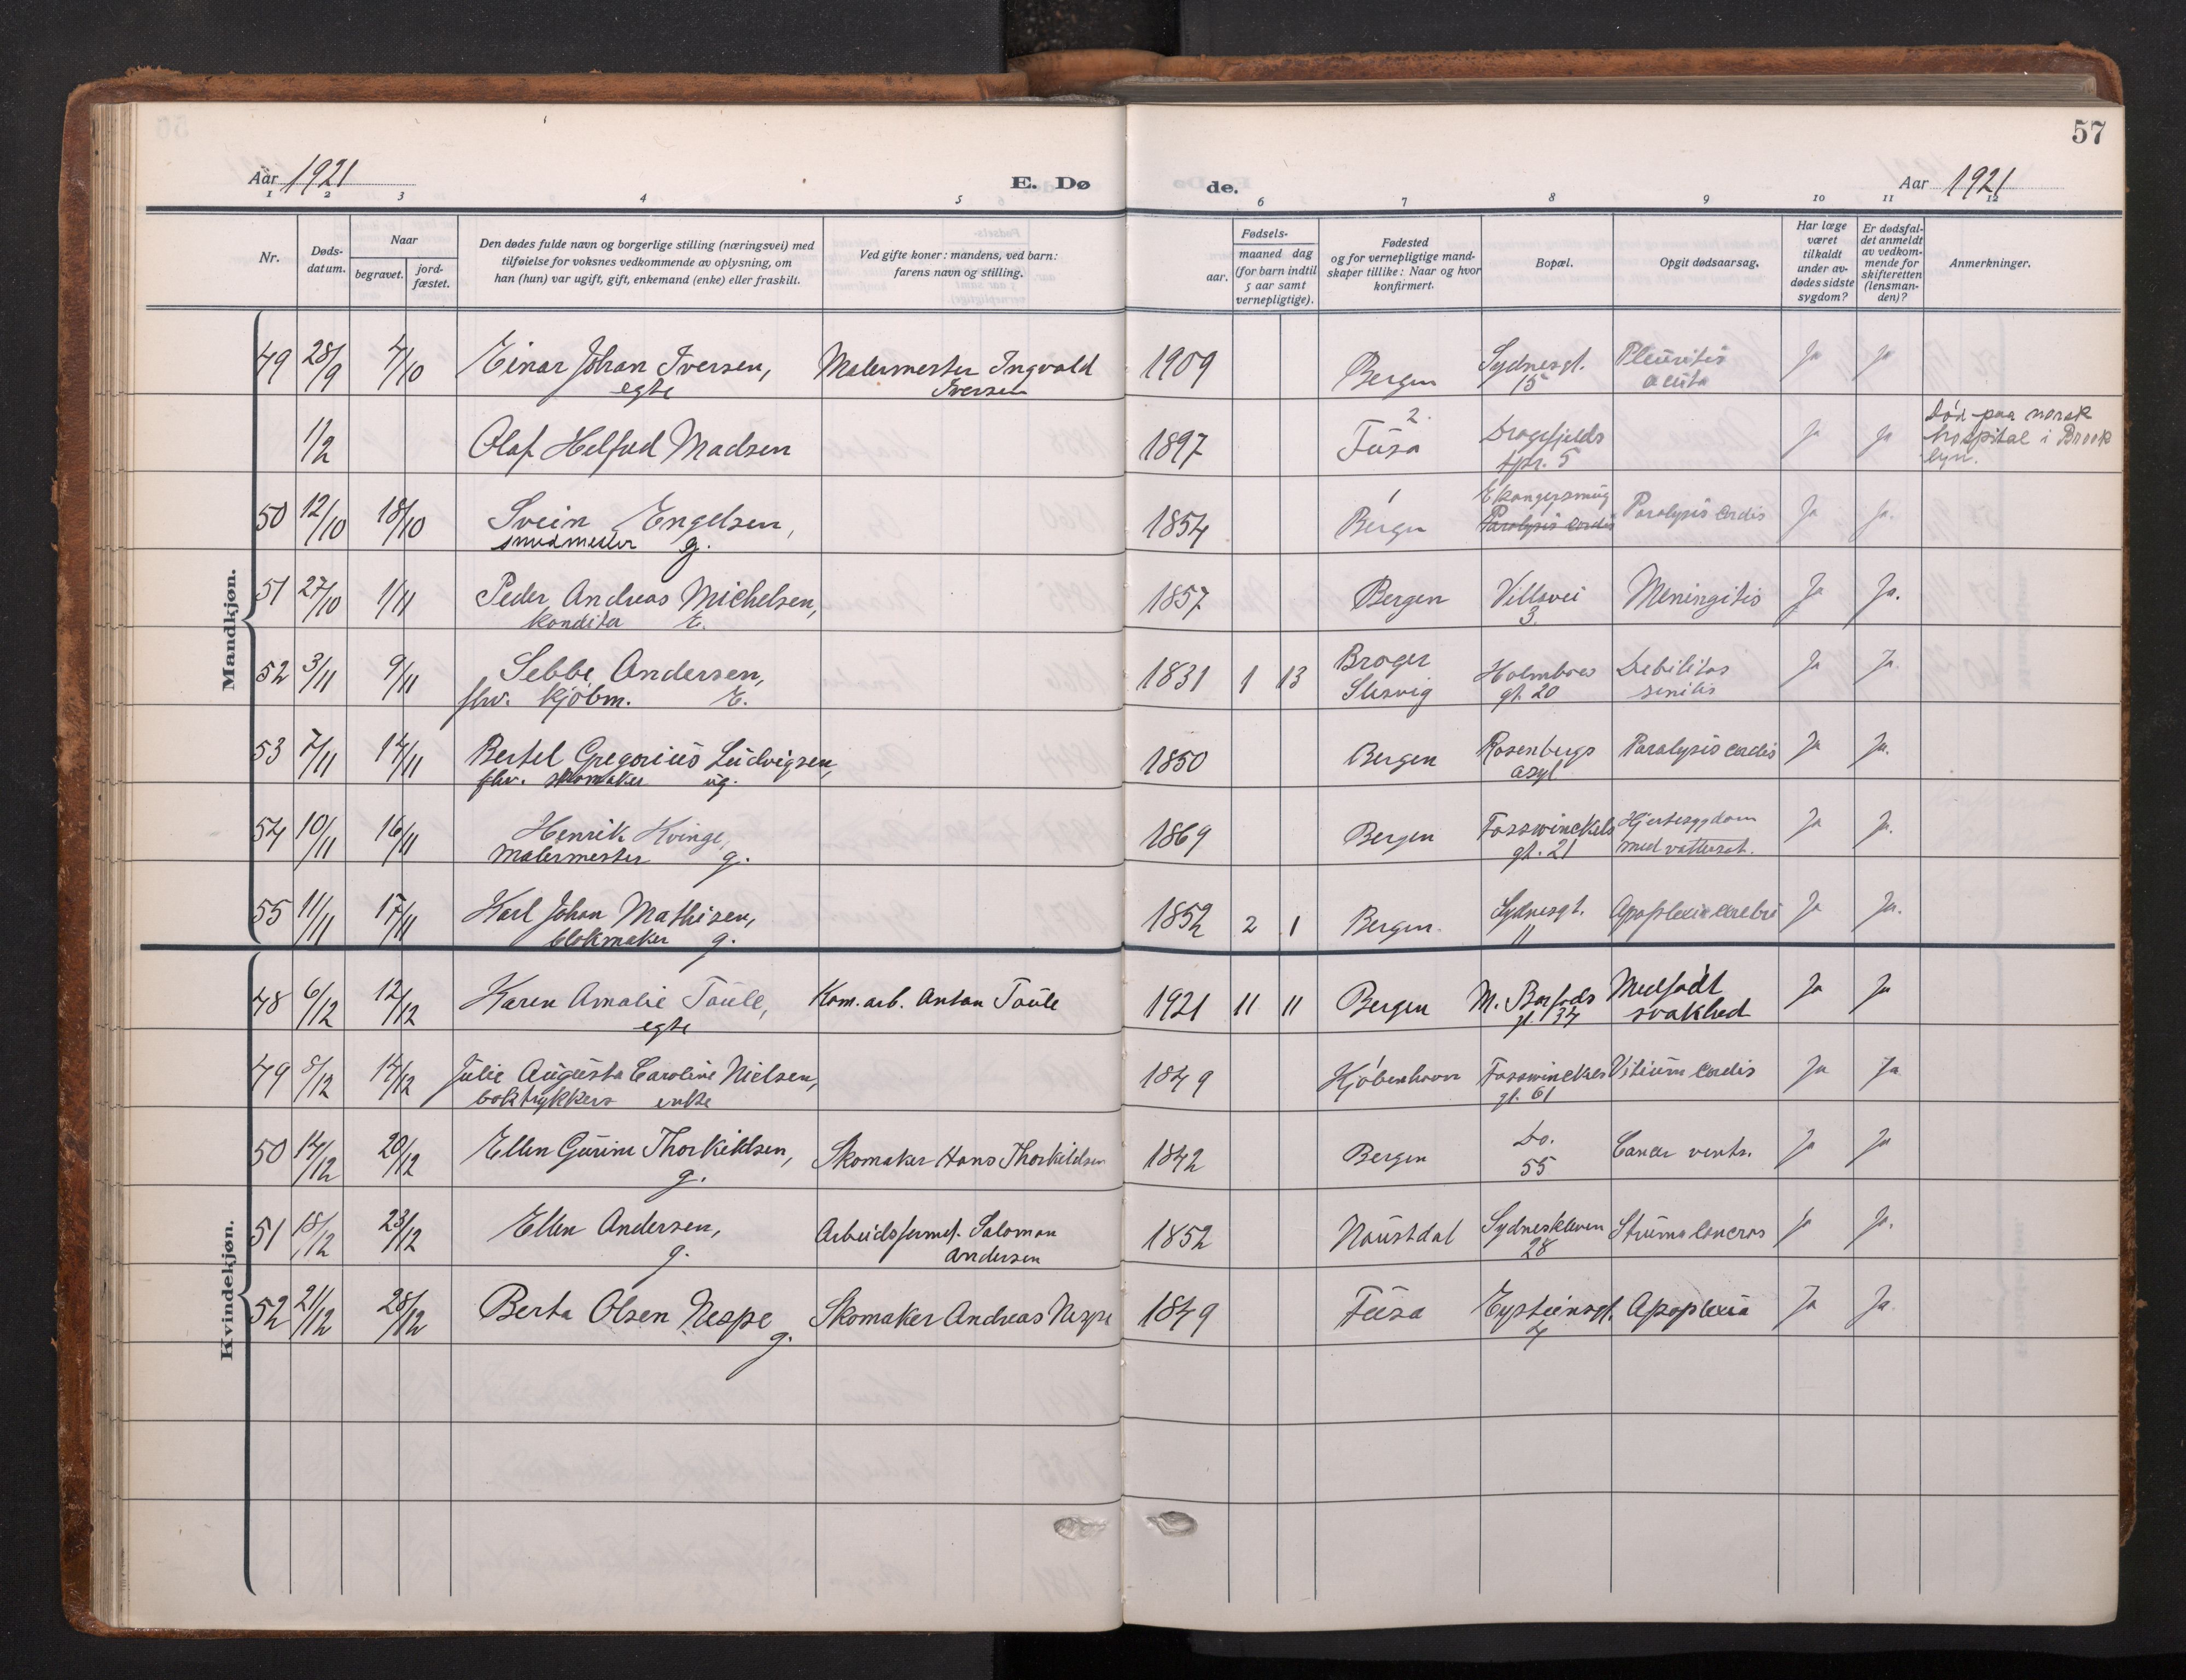 57
Aar 1921
E. Dø de.
Aar 1921
1 2 3 4 5 6 7 8 9 10 11 12
Nr.
Døds-
datum.
Naar
begravet.
jord-
fæstet.
Den dødes fulde navn og borgerlige stilling (næringsvei) med
tilføielse for voksnes vedkommende av oplysning, om
han (hun) var ugift, gift, enkemand (enke) eller fraskilt.
Ved gifte koner: mandens, ved barn:
farens navn og stilling.
Fødsels-
aar.
maaned dag
(for barn indtil
5 aar samt
vernepligtige).
Fødested
og for vernepligtige mand-
skaper tillike: Naar og hvor
konfirmert.
Bopæl.
Opgit dødsaarsag.
Har læge
været
tilkaldt
under av-
dødes sidste
sygdom?
Er dødsfal-
det anmeldt
av vedkom-
mende for
skifteretten
(lensman-
den)?
Anmerkninger.
Mandkjøn.
49 28/9 4/10 Einar Johan Iversen, Malermester Ingvald 1909 Bergen Sydnesgt. Pleuritis Ja Ja
egte Iversen 15 acuta
1/2 Olaf Helfud Madsen 1897 2. Fusa Dragefjelds Ja Ja Død paa norsk
tpr. 5 hospital i Brook
lyn.
50 12/10 18/10 Svein Engelsen, 1854 Bergen Ekangersmug Paralysis cordis Ja Ja.
smedmester g. Paralysis cordis
51 27/10 1/11 Peder Andreas Michelsen, 1857 Bergen Villavei Meningitis Ja Ja.
konditor E. 3.
52 3/11 9/11 Sebbe Andersen, 1831 1 13 Broger Holmboes Debilitas Ja Ja.
fhv. kjøbm. E. Slesvig gt. 20 senilis
53 7/11 14/11 Bertel Gregorius Ludvigsen, 1850 Bergen Rosenbergs Paralysis cordis Ja Ja.
fhv. skomaker ug. asyl
54 10/11 16/11 Henrik Kvinge, 1869 Bergen Fosswinckels Hjertesygdom Ja Ja.
malermester g. gt. 21 med vattersot.
55 11/11 17/11 Karl Johan Mathisen, 1852 2 1 Bergen. Sydnesgt. Apoplexia cerebri Ja Ja.
blokmaker g. 11
Kvindekjøn.
48 6/12 12/12 Karen Amalie Taule, Kom. arb. Anton Taule 1921 11 11 Bergen M. Barfods Medfødt Ja Ja
egte gt. 34 svakhed
49 8/12 14/12 Julie Augusta Caroline Nielsen, 1849 Kjøbenhavn Fosswinckels Vitium cordis Ja Ja
boktrykkers enke gt. 61
50 14/12 20/12 Ellen Gurine Thorkildsen, Skomaker Hans Thorkildsen 1842 Bergen Do. Cancer ventr. Ja Ja
g. 55
51 18/12 23/12 Ellen Andersen, Arbeidsformd. Salomon 1852 Naustdal Sydneskleven Struma cancros Ja Ja.
g. Andersen 28
52 21/12 28/12 Berta Olsen Nespe Skomaker Andreas Nespe 1849 Fusa Eysteinsgt. Apoplexia Ja Ja
g. 4